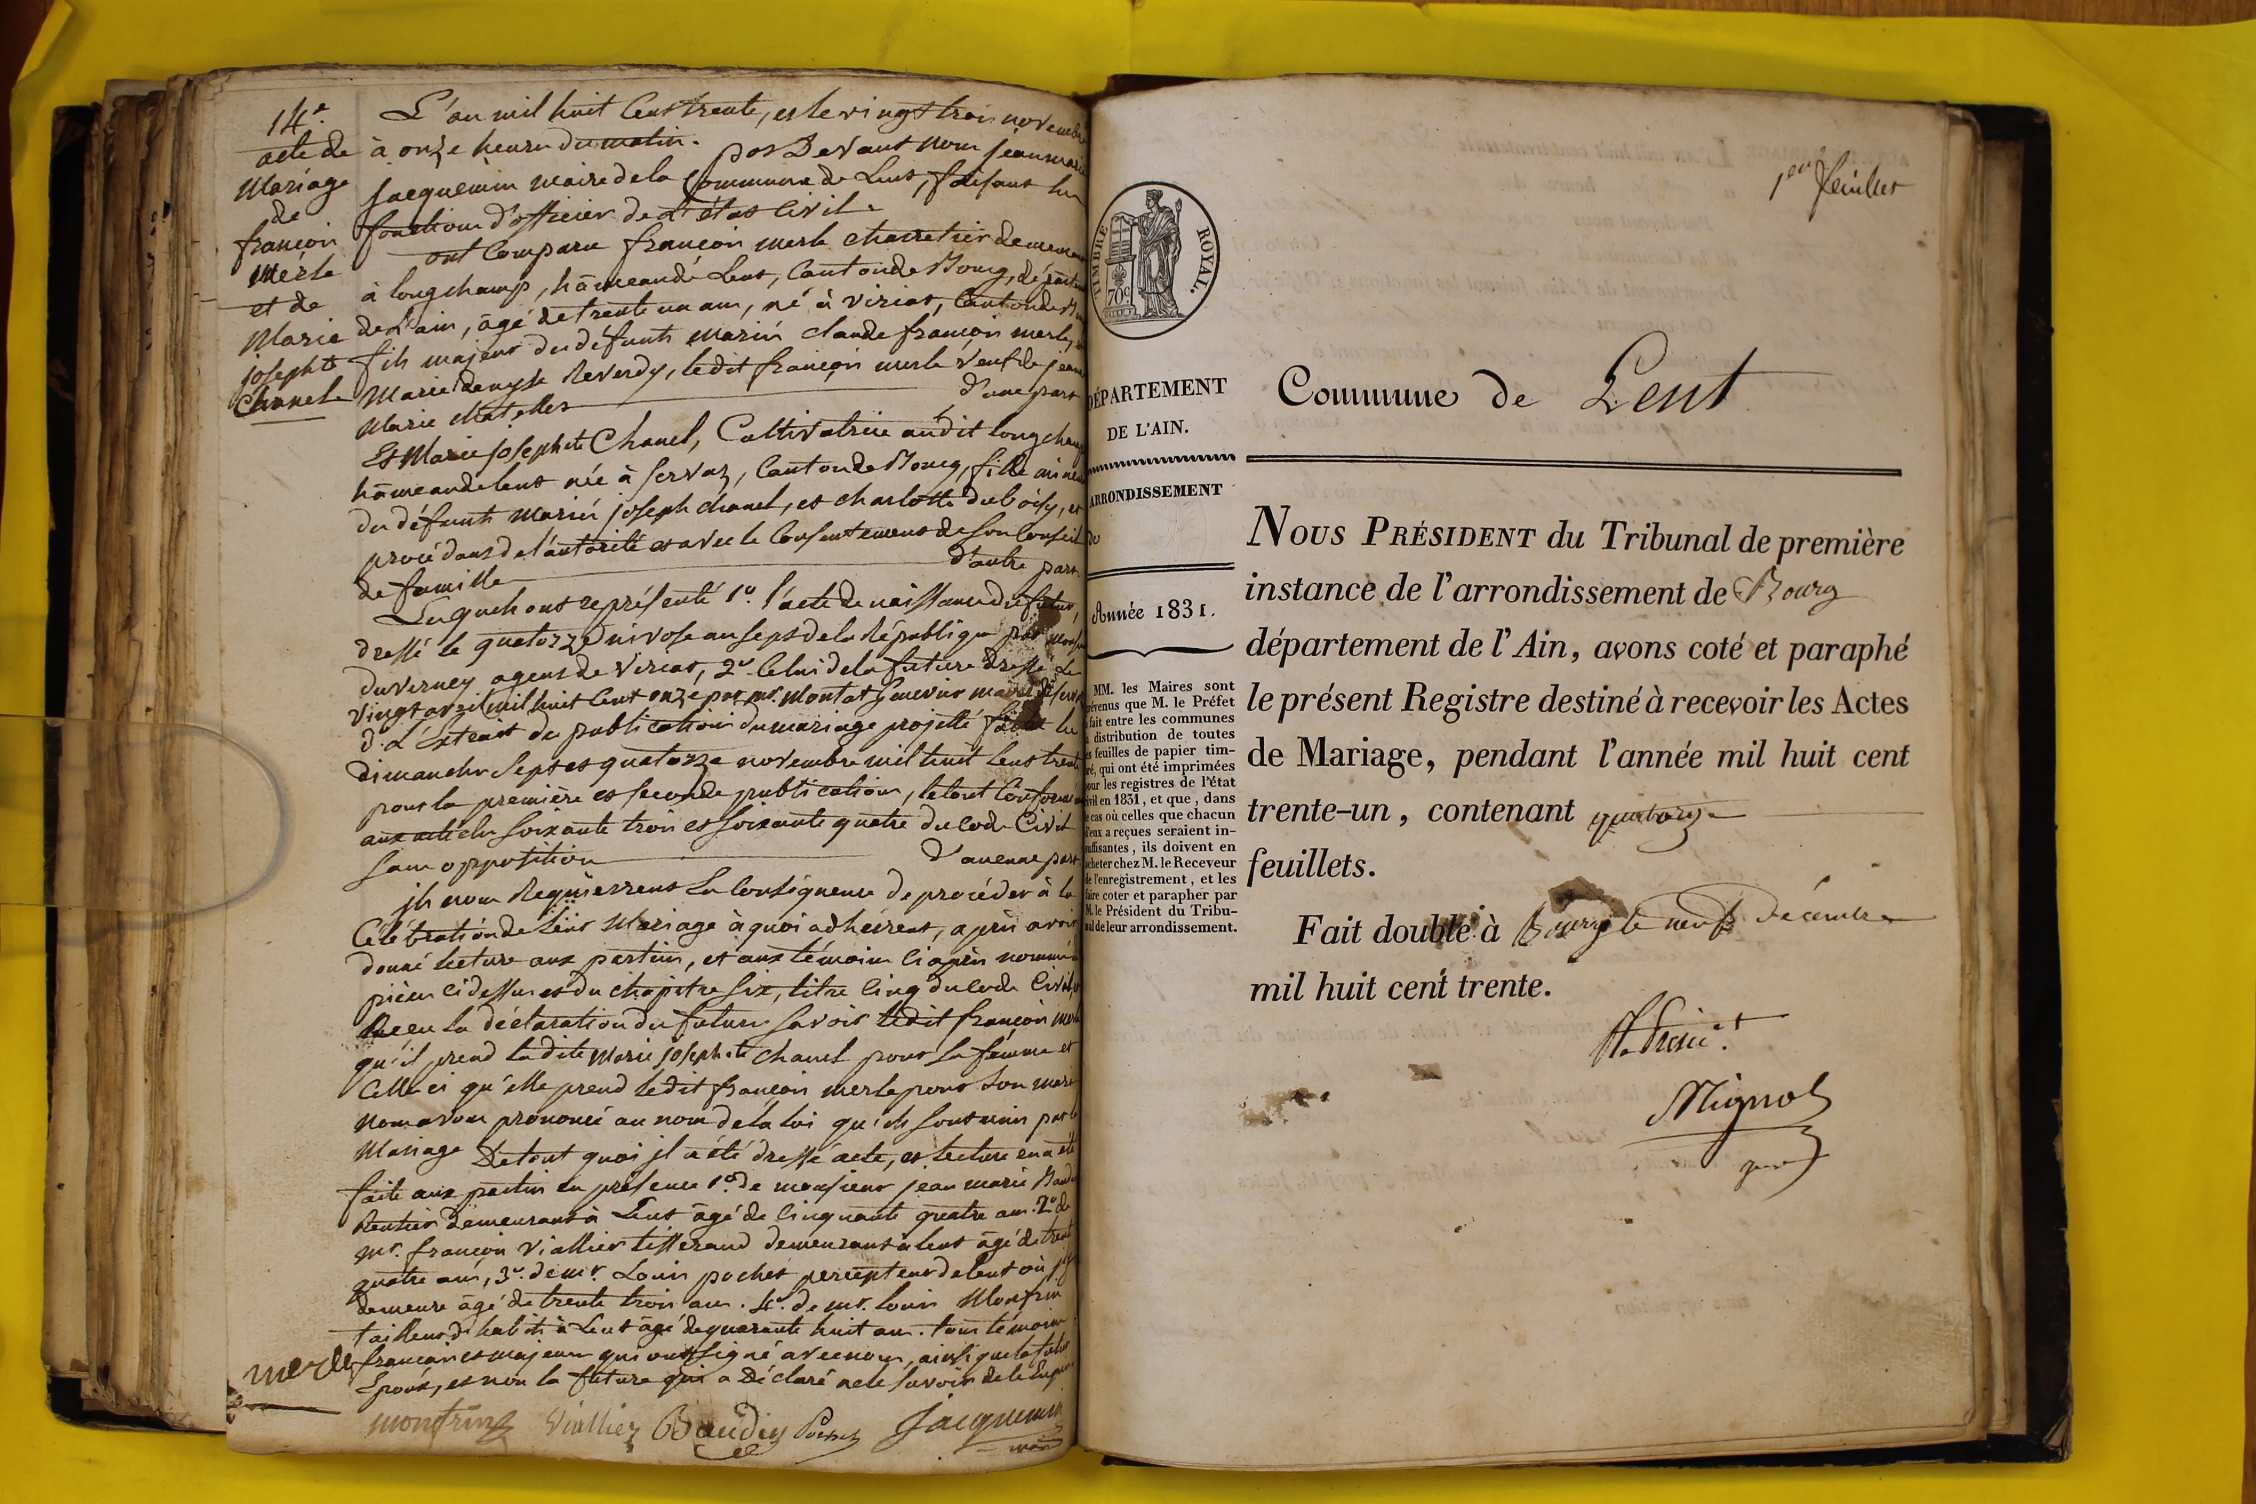 14e.
acte de
Mariage
de
françois
Merle
et de
Marie
josephte
Chanel
L'an mil huit Cent trente, et le vingt trois novembre
à onze heures du matin.
par Devant nous jean marie
jacquemin maire de la Commune de Lent, faisant les
fonctions d'officier de L'état Civil.
ont Comparu françois merle charretier demeurant
à longchamp, hâmeau de Lent, Canton de Bourg, départem
de L'ain, âgé de trente un ans, né à viriat, Canton de B
fils majeur des défunts mariés claude françois merle, et
Marie denyse Reverdy, le dit françois merle veuf de jeanne
Marie
d'une part
Et Marie josephte Chanel, Cultivatrice audit longchamp
hâmeau de lent née à servas, Canton de Bourg, fille mineure
des défunts mariés joseph chanel, et charlotte duboisy, et
procédant de l'autorité et avec le Consentement de son Conseil
de famille d'autre part.
Lesquels ont représenté 1o. l'acte de naissance du futur,
dressé le quatorze nivose an sept de la République par
duverney agent de viriat, 2o. Celui de la future dressé Le
vingt avril mil huit Cent onze par mr. montat maire de servas
3. L'Extrait des publications du mariage projetté faites les
dimanches sept et quatorze novembre mil huit Cent trente
pour la première et seconde publication, le tout Conforme
aux articles soixante trois et soixante quatre du code Civil
sans opposition d'aucune part.
ils nous Requièrrent En Conséquence de procéder à la
Célébration de Leur Mariage à quoi adhérent, après avoir
donné lecture aux parties, et aux témoins Ci après nommés
pièces ci dessus et du chapitre six, titre Cinq du code Civil
Reçu la déclaration des futurs savoir ledit françois merle
qu'il prend la dite Marie josephte chanel pour sa fémme et
Celle ci qu'elle prend ledit françois merle pour son mari
Nous avons prononcé au nom de la Loi qu'ils sont unis par le
Mariage De tout quoi il a été dressé acte, et lecture en a été
faite aux parties en présence 1o. de monsieur jean marie Baudin
Rentier demeurant à Lent âgé de Cinquante quatre ans. 2o. de
mr. françois Viallier tisserand demeurant à lent âgé de trente
quatre ans, 3o. de mr. Louis pochet percepteur de lent où il
demeure âgé de trente trois ans. 4o. de mr. louis Monfrin
tailleur d'habits à Lent âgé de quarante huit ans. tous témoins
français et majeurs qui ont signé avec nous, ainsi que le futur
Epoux, et non la future qui a déclaré ne le savoir de le Enquis
merle
monfrin Viallier Baudin Pochet Jacquemin
maire
1er feuillet
TIMBRE ROYAL.
70c
DÉPARTEMENT
DE L'AIN.
ARRONDISSEMENT
de
Année 1831.
MM. les Maires sont
prévenus que M. le Préfet
a fait entre les communes
la distribution de toutes
les feuilles de papier tim-
bré, qui ont été imprimées
pour les registres de l'état
civil en 1831, et que, dans
le cas où celles que chacun
d'eux a reçues seraient in-
suffisantes, ils doivent en
acheter chez M. le Receveur
de l'enregistrement, et les
faire coter et parapher par
M. le Président du Tribu-
nal de leur arrondissement.
Commune de Lent
NOUS PRÉSIDENT du Tribunal de première
instance de l'arrondissement de Bourg
département de l'Ain, avons coté et paraphé
le présent Registre destiné à recevoir les Actes
de Mariage, pendant l'année mil huit cent
trente-un, contenant quatorze
feuillets.
Fait double à Bourg le neuf décembre
mil huit cent trente.
Mignot